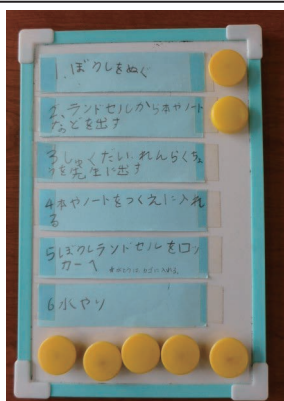 1.ぼうしをぬぐ
2.ランドセルから本やノート
などを出す
3しゅくだい れんらくちょ
うを先生に出す
4本やノートをつくえに入れ
る
5ぼうしランドセルをロッ
カーへ
6水やり